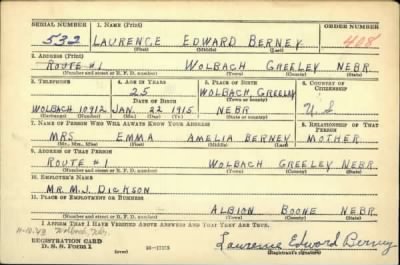 SERIAL NUMBER 1. NAME (Print) ORDER NUMBER
532 LAURENCE EDWARD BERNEY 408
(First) (Middle) (Last)
2. ADDRESS (Print)
ROUTE #1 WOLBACH GREELEY NEBR
(Number and street or R. F. D. number) (Town) (County) (State)
3. TELEPHONE 4. AGE IN YEARS 5. PLACE OF BIRTH 6. COUNTRY OF CITIZENSHIP
25 WOLBACH, GREELEY
DATE OF BIRTH (Town or county)
WOLBACH 10912 JAN. 22 1915 NEBR U.S
(Exchange) (Number) (Mo.) (Day) (Yr.) (State or country)
7. NAME OF PERSON WHO WILL ALWAYS KNOW YOUR ADDRESS 8. RELATIONSHIP OF THAT PERSON
MRS EMMA AMELIA BERNEY MOTHER
(Mr., Mrs., Miss) (First) (Middle) (Last)
9. ADDRESS OF THAT PERSON
ROUTE #1 WOLBACH GREELEY NEBR.
(Number and street or R. F. D. number) (Town) (County) (State)
10. EMPLOYER'S NAME
MR. M.J. DICKSON
11. PLACE OF EMPLOYMENT OR BUSINESS
ALBION BOONE NEBR
(Number and street or R. F. D. number) (Town) (County) (State)
I AFFIRM THAT I HAVE VERIFIED ABOVE ANSWERS AND THAT THEY ARE TRUE.
Wolbach, Neb.
REGISTRATION CARD
D. S. S. FORM 1 (over) Laurence Edward Berney
(Registrant's signature)